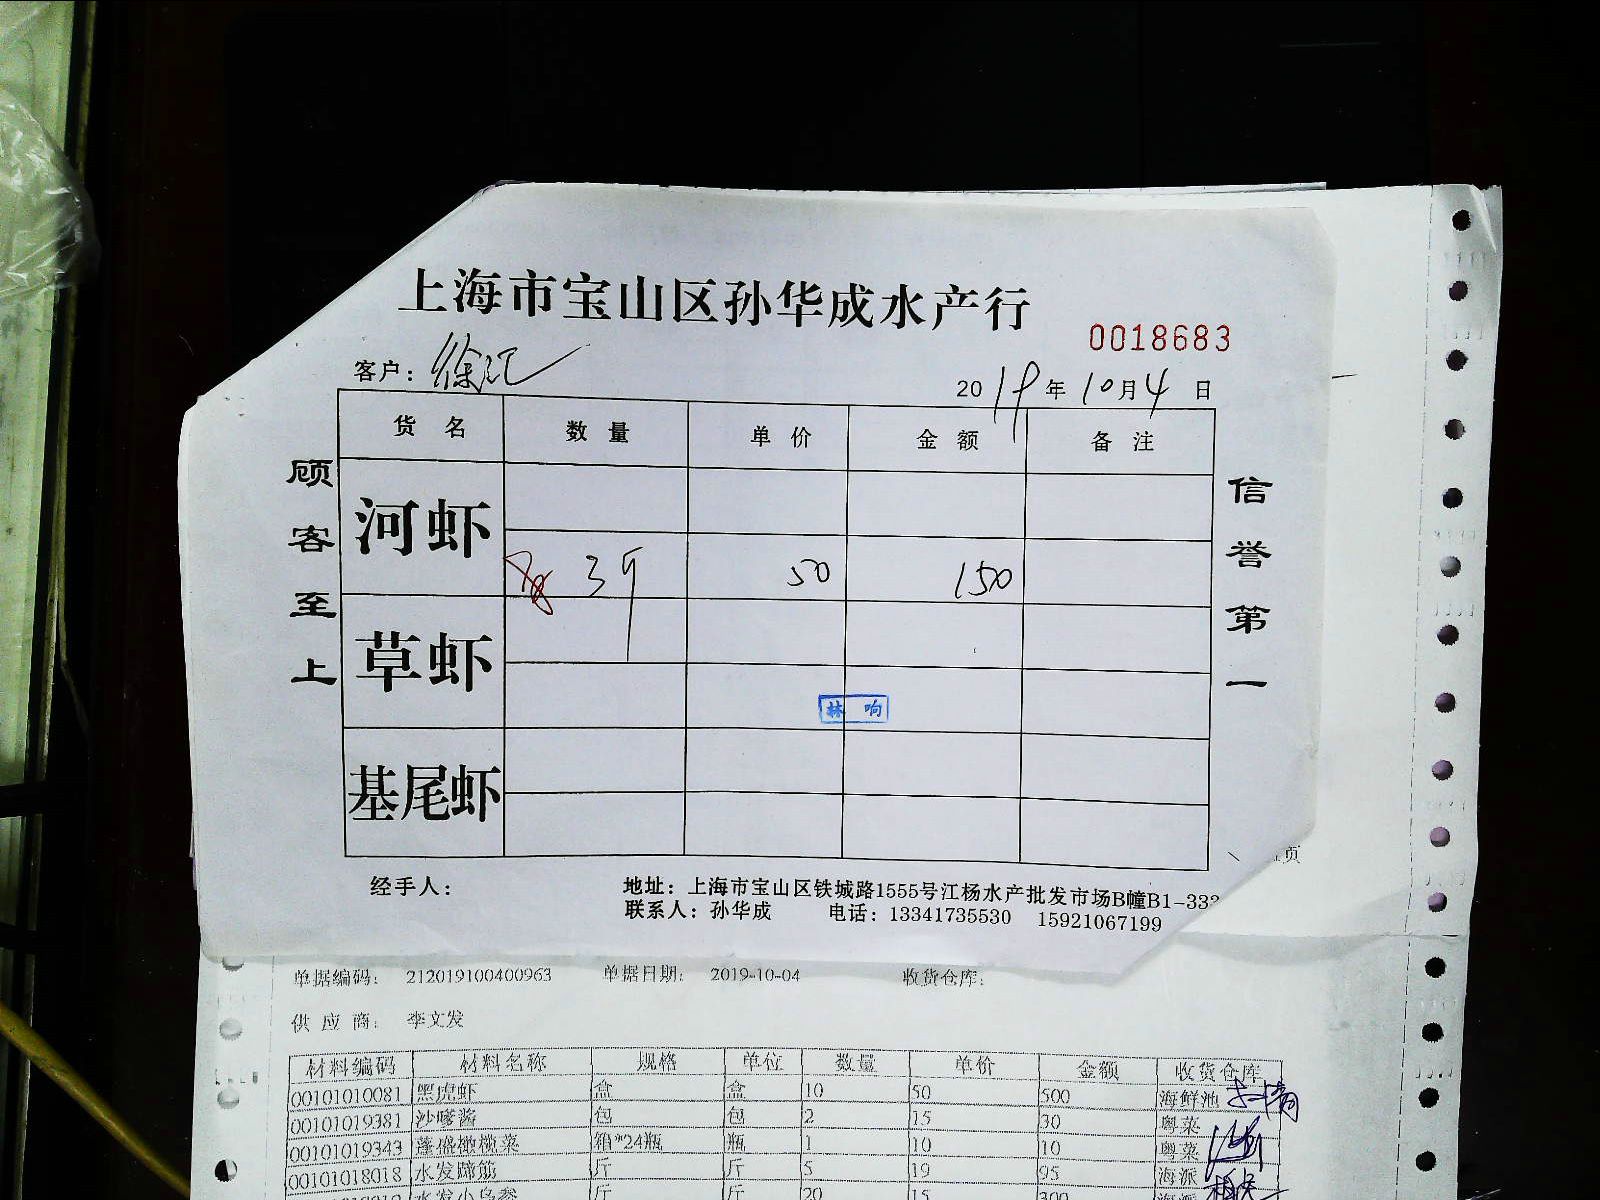 上海市宝山区孙华成水产行
0018683
客户：徐汇
2019年10月4日
顾客至上
货名 数量 单价 金额 备注
河虾
3斤 50 150
草虾
林响
基尾虾
信誉第一
经手人：
地址：上海市宝山区铁城路1555号江杨水产批发市场B幢B1-333
联系人：孙华成 电话：13341735530 15921067199
页
单据编码： 212019100400963 单据日期： 2019-10-04 收货仓库：
供应商： 李文发
材料编码 材料名称 规格 单位 数量 单价 金额 收货仓库
00101010081 黑虎虾 盒 盒 10 50 500 海鲜池
00101019381 沙嗲酱 包 包 2 15 30 粤菜
00101019343 蓬盛橄榄菜 箱*24瓶 瓶 1 10 10 粤菜
00101018018 水发蹄筋 斤 斤 5 19 95 海派
水发小乌参 斤 斤 20 15 300 海派